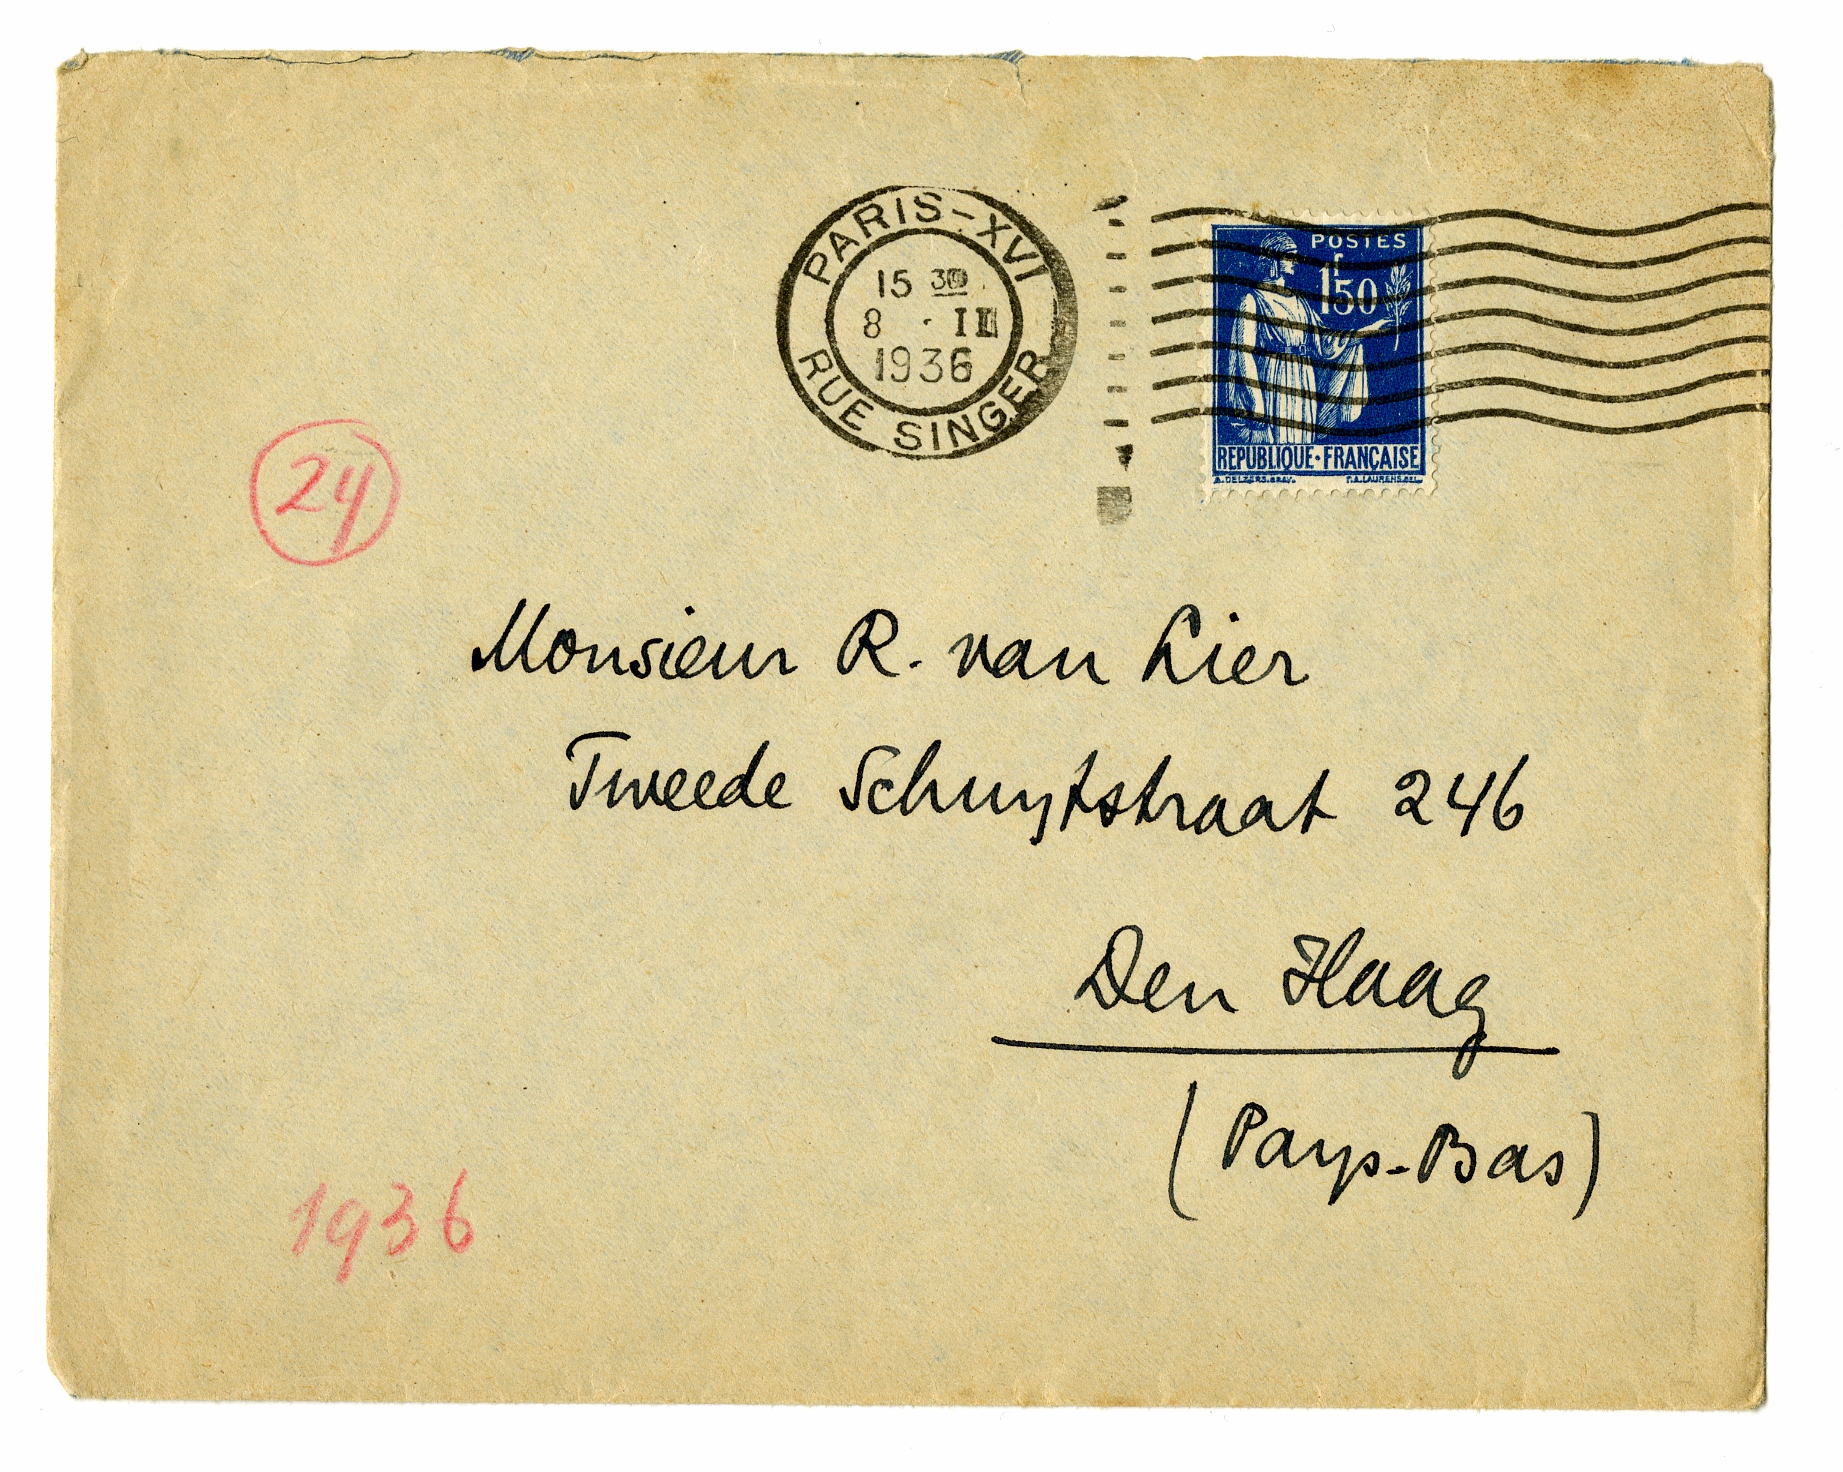 PARIS-XVI
15 30
8 · III
1936
RUE SINGER
POSTES
1f50
REPUBLIQUE·FRANÇAISE
A.DELZERS.GRAV. P.A.LAURENS.DEL.
24
Monsieur R. van Lier
Tweede Schuytstraat 246
Den Haag
(Pays-Bas)
1936